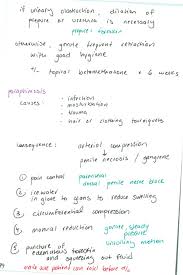 if urinary obstruction, dilation of
prepuce or urethra is necessary
otherwise, gentle frequent retraction
with good hygiene
+/- topical betamethasone x 6 weeks
paraphimosis
causes - infection
- masturbation
- trauma
- hair or clothing tourniquets
consequence: arterial compression
→ penile necrosis / gangrene
① pain control parenteral
dorsal penile nerve block
② ice water
in glove to glans to reduce swelling
③ circumferential compression
④ manual reduction gentle, steady
pressure
⑤ puncture of
edematous foreskin
and squeezing out fluid
make sure patient can void before d/c